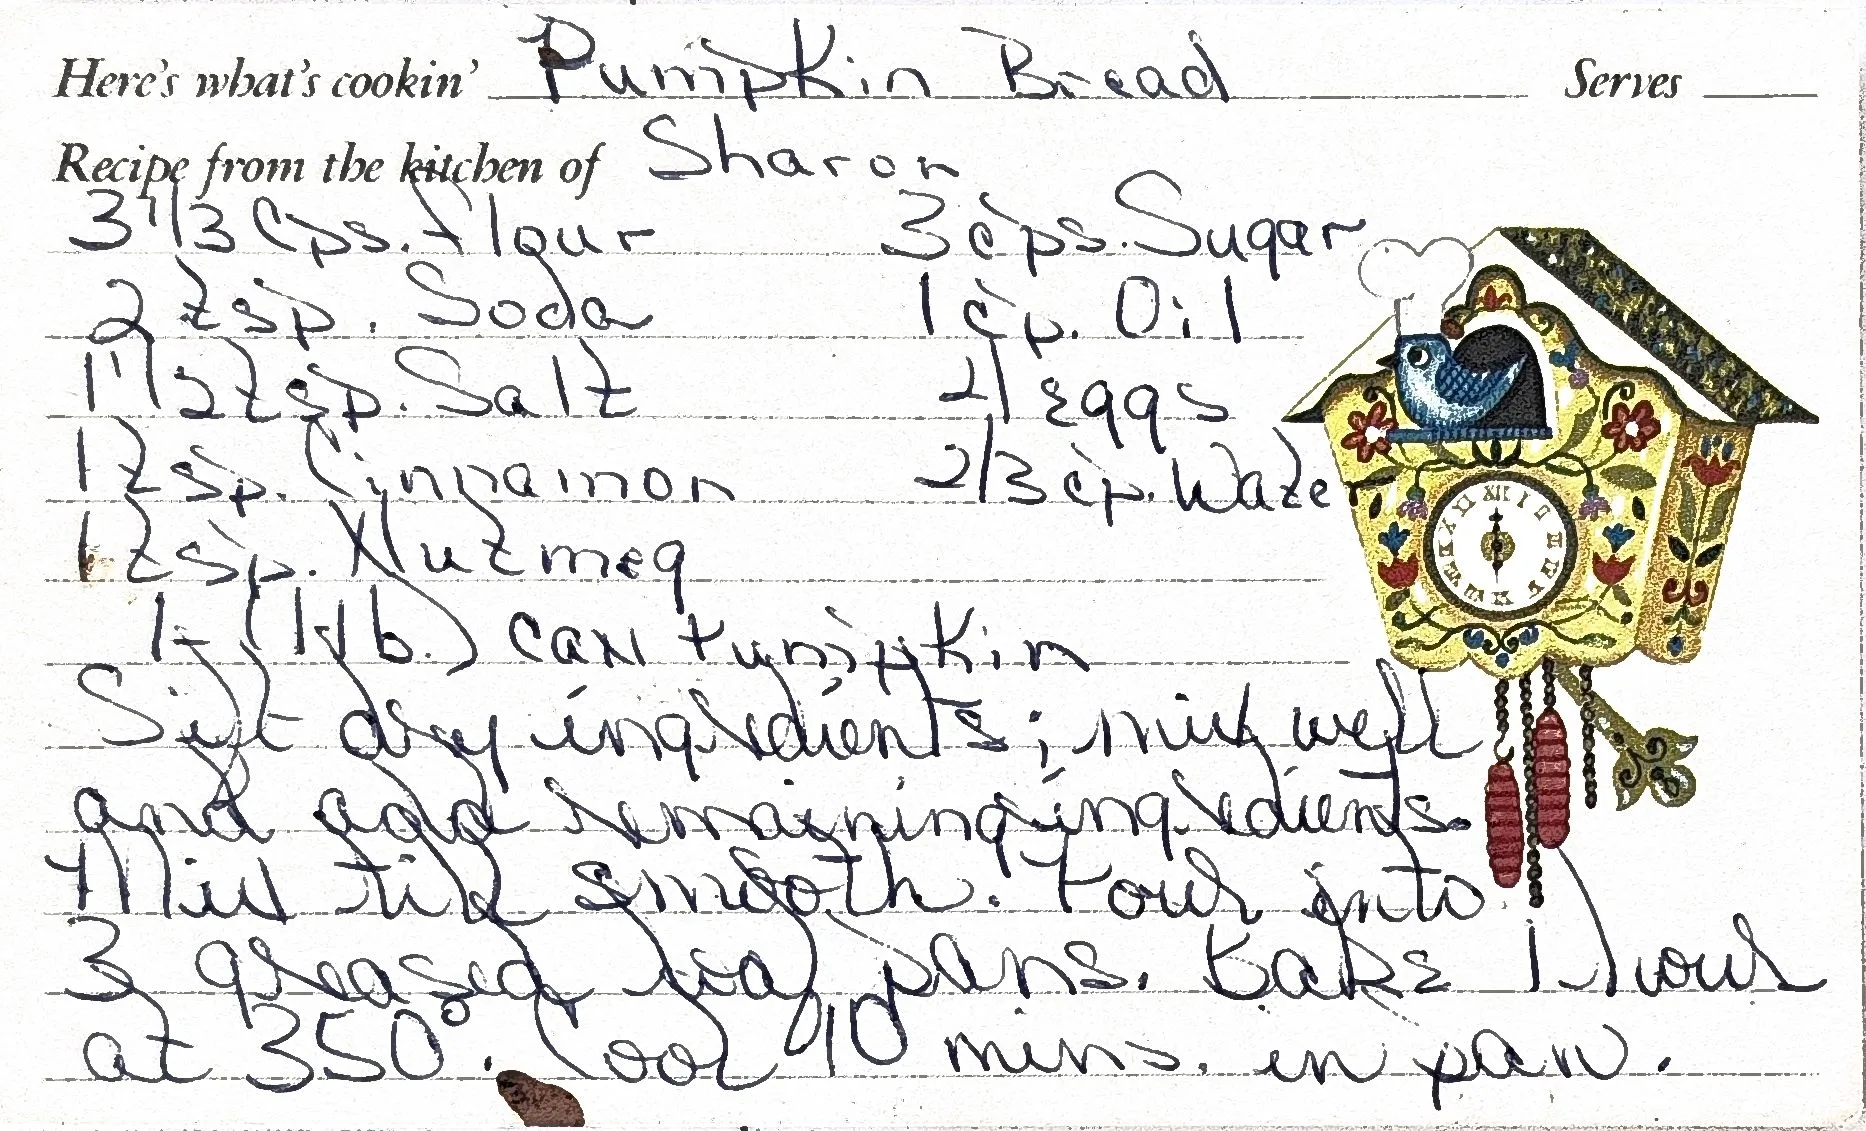 Here's what's cookin' Pumpkin Bread Serves
Recipe from the kitchen of Sharon
3 1/3 Cps. flour 3 cps. Sugar
2 tsp. Soda 1 cp. Oil
1 1/2 tsp. Salt 4 eggs
1 tsp. Cinnamon 2/3 cp. Wate
1 tsp. Nutmeg
1- (1 lb.) can pumpkin
Sift dry ingredients; mix well
and add remaining ingredients.
Mix til smooth. Pour into
3 greased loaf pans. Bake 1 hour
at 350°. Cool 10 mins. in pan.
XII I II III IV V VI VII VIII IX X XI